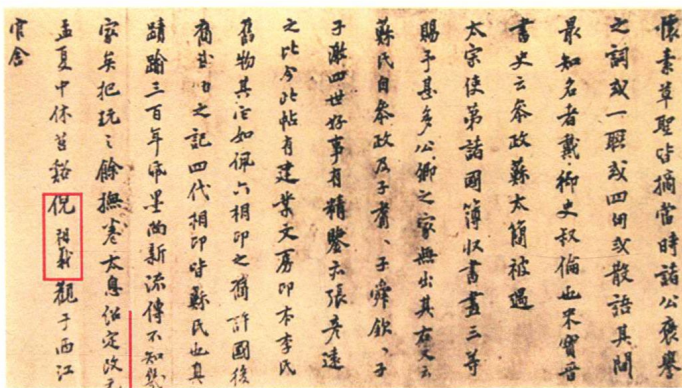 懷素草聖皆摘當時諸公褒譽
之詞或一聯或四句或散語其間
最知名者戴御史叔倫也米寶晉
書史云參政蘇太簡被遇
太宗使第諸國簿収書畫三等
賜予甚多公卿之家無出其右又云
蘇氏自參政及子耆、子舜欽、子
子激四世好事有精鑒亦張彥遠
之比今此帖有建業文房印本李氏
舊物其它如佩六相印之裔許國後
裔武功之記四代相印皆蘇氏也真
蹟踰三百年紙墨尚新流傳不知幾
家矣把玩之餘撫卷太息紹定改元
孟夏中休苕谿倪祖義觀于西江
官舍